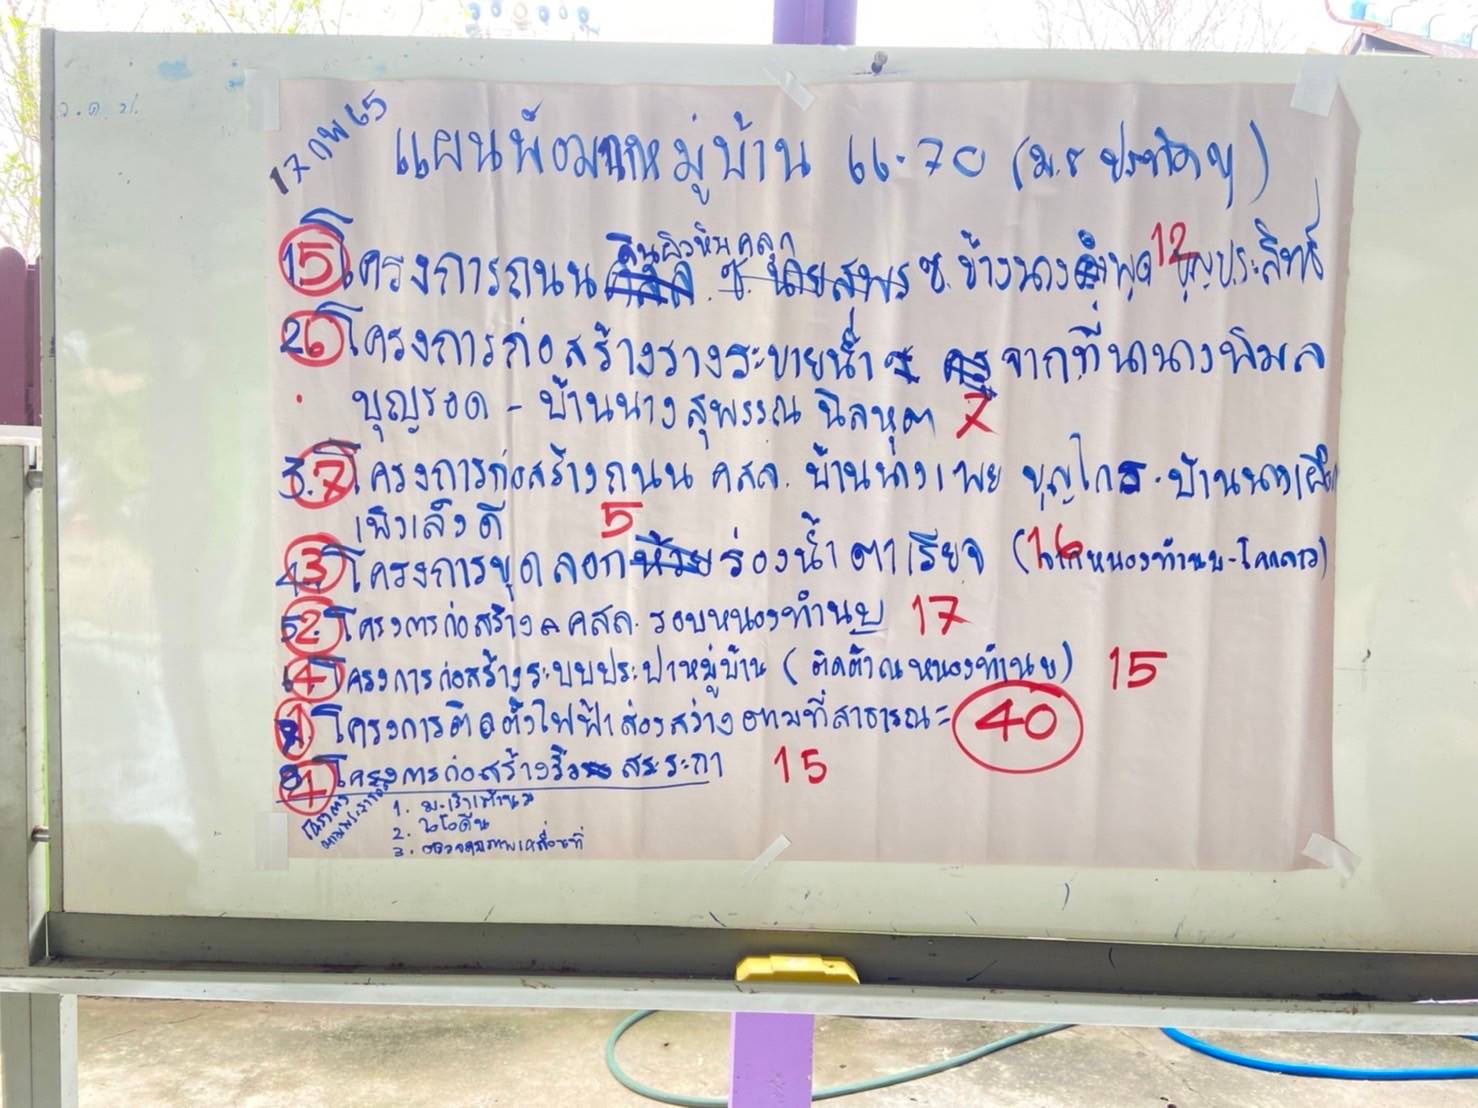 17 กพ 65
แผนพัฒนาหมู่บ้าน 66-70 (ม.8 ประทัดบุ)
ดินผิวหินคลุก
1. 5 โครงการถนน คสล. ซ. นายสุพร ซ. ข้างนาง พูด 12 บุญประสิทธิ์
2. 6 โครงการก่อสร้างรางระบายน้ำ จากที่นานางพิมล
บุญรอด - บ้านนางสุพรรณ นิลหุต 7
3. 7 โครงการก่อสร้างถนน คสล. บ้านนางเพย บุญไกร - บ้านนางเผือก
เพิงเล็งดี 5
4. 3 โครงการขุดลอกห้วยร่องน้ำตาเรียจ (จากหนองทำนบ-โคกลาว) 16
5. 2 โครงการก่อสร้าง คสล. รอบหนองทำนบ 17
6. 4 โครงการก่อสร้างระบบประปาหมู่บ้าน (ติดตั้งณหนองทำนบ) 15
7. 1 โครงการติดตั้งไฟฟ้าส่องสว่างตามที่สาธารณะ 40
8. 4 โครงการก่อสร้างรั้ว สระระกา 15
โครงการ
1. ม.เร็งเต้านม
2. ไอโอดีน
3. ตรวจสุขภาพเคลื่อนที่